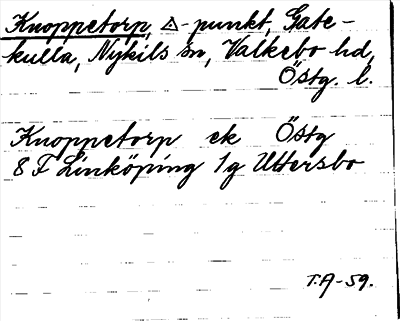 Knoppetorp, △-punkt, Gate-
kulla, Nykils sn, Valkebo hd,
Östg. l.
Knoppetorp ek Östg
8 F Linköping 1g Uttersbo
T.A-59.